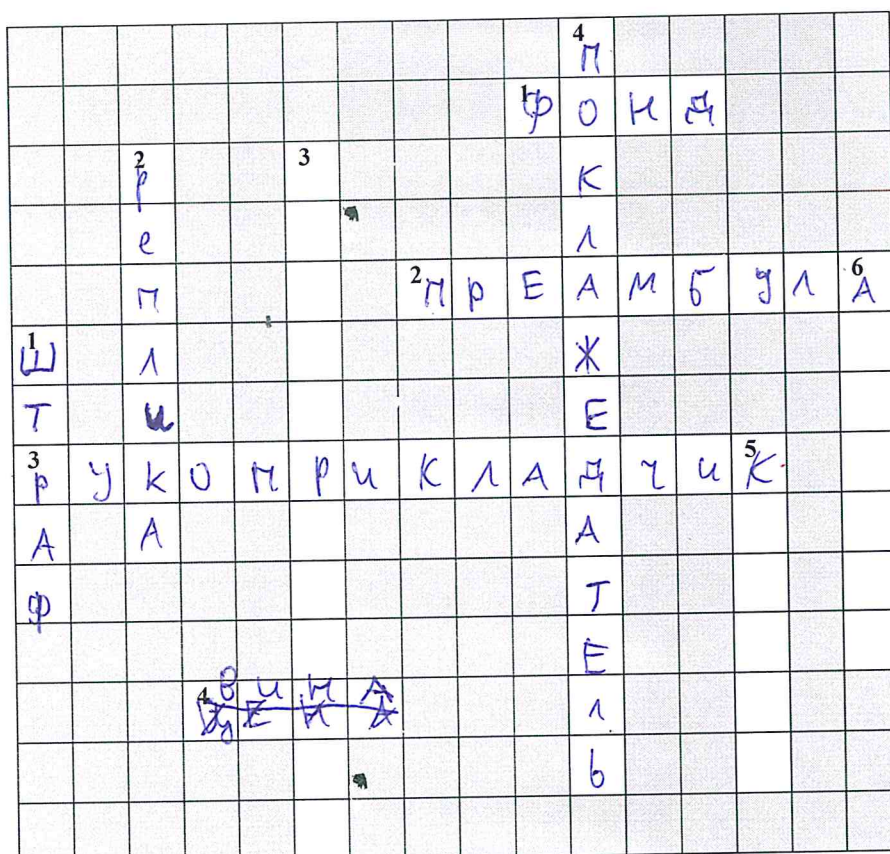 4
П
1 Ф О Н Д
2 3
Р К
е Л
2 П Р Е А М Б У Л 6 А
п
1 Ш л Ж
Т и Е
3 Р У К О П Р И К Л А Д Ч И 5 К
А А А
Ф Т
Е
В И Н А
4 Л
Ь